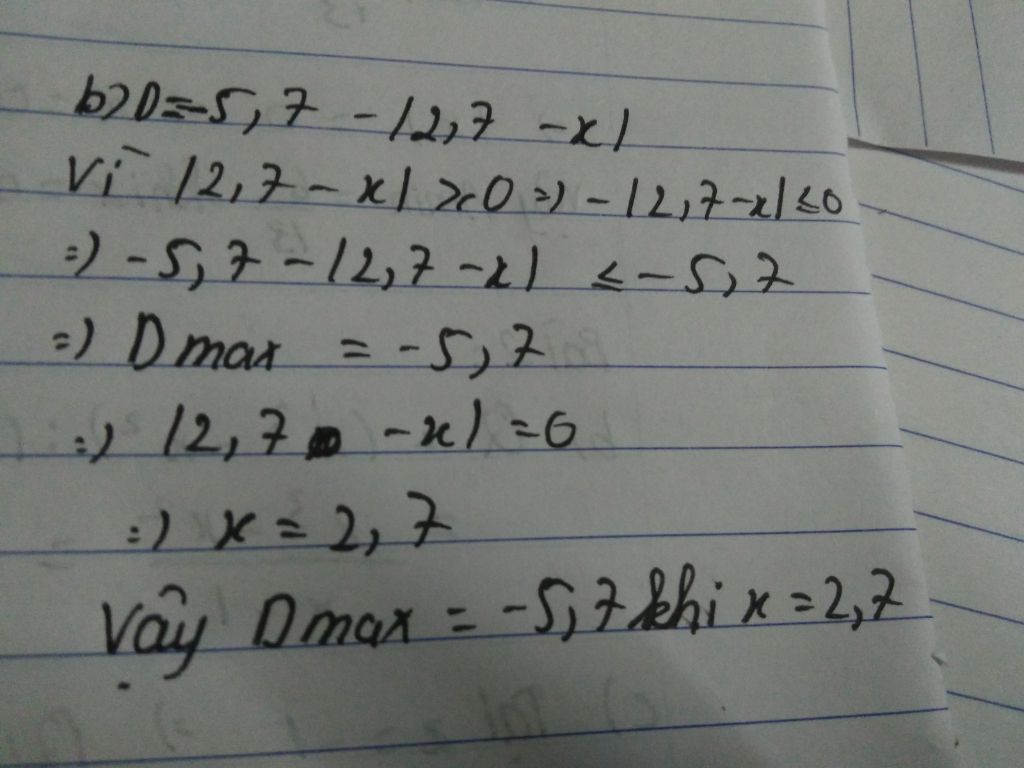 b) D = -5,7 - |2,7 - x|
Vì |2,7 - x| ≥ 0 => - |2,7 - x| ≤ 0
=) -5,7 - |2,7 - x| ≤ -5,7
=) D max = -5,7
=) |2,7 - x| = 0
=) x = 2,7
Vậy D max = -5,7 khi x = 2,7